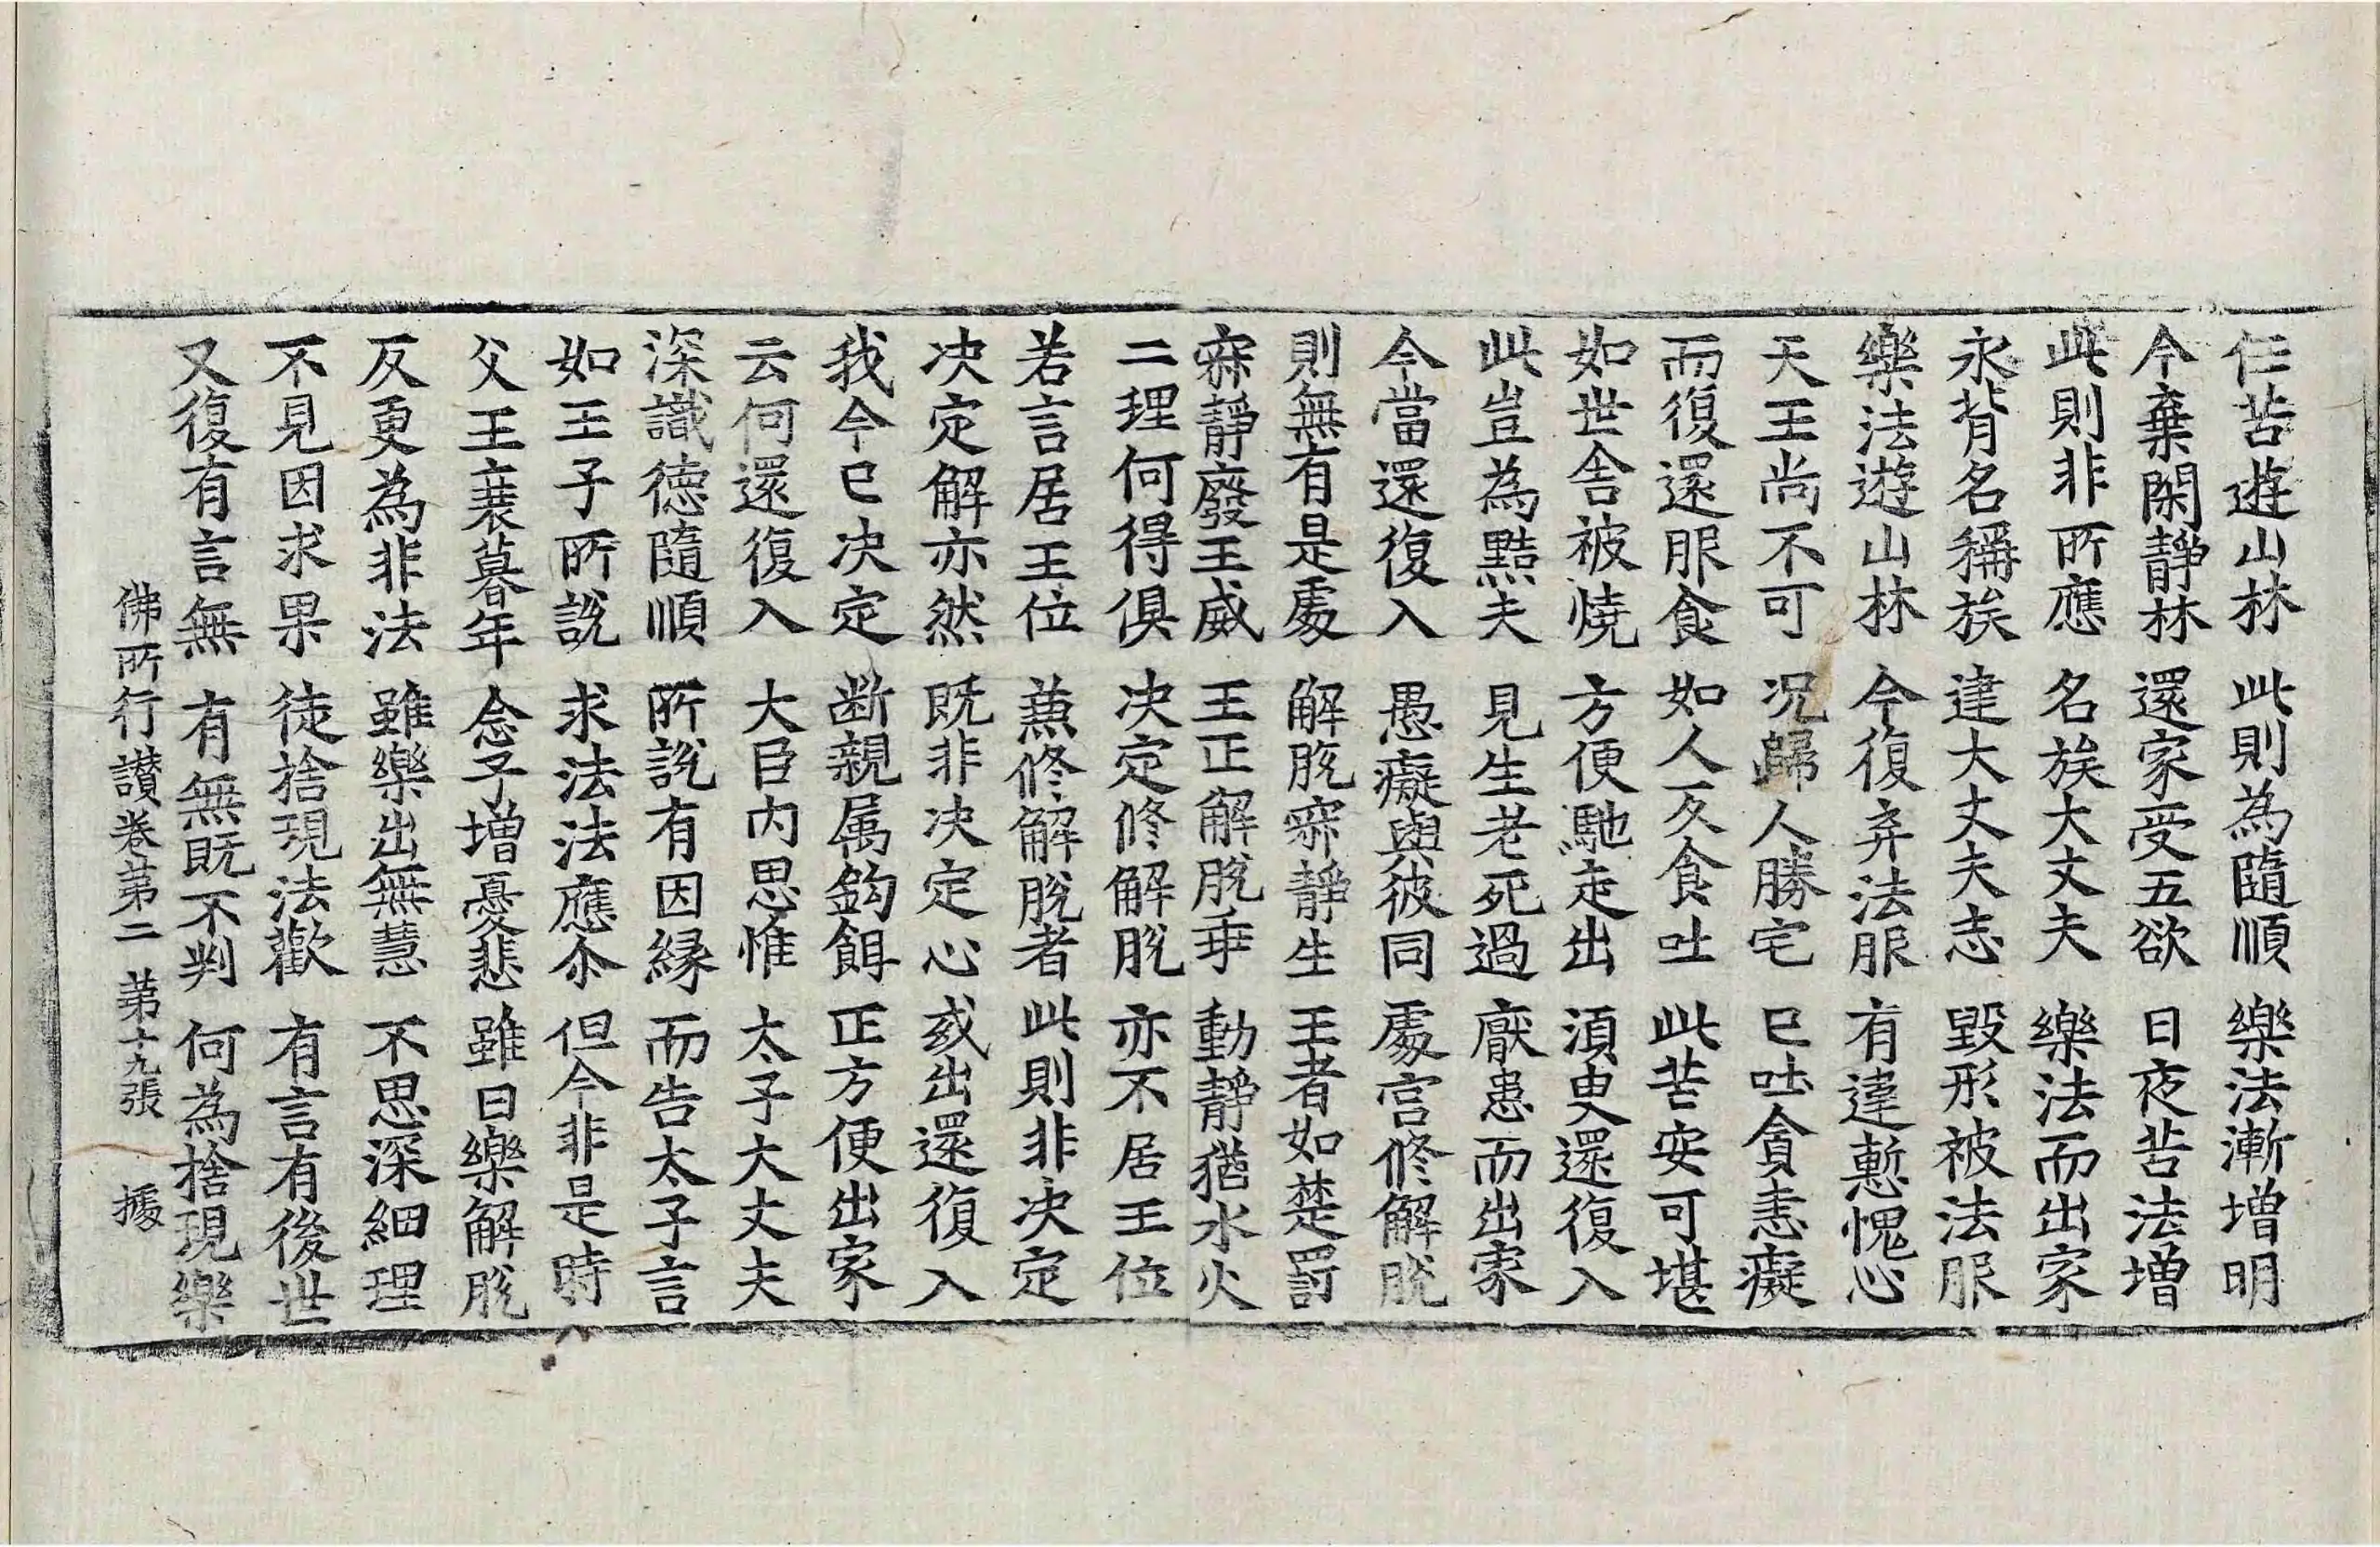 仁苦遊山林 此則為隨順 樂法漸增明
今棄閑靜林 還家受五欲 日夜苦法增
此則非所應 名族大丈夫 樂法而出家
永背名稱族 建大丈夫志 毀形被法服
樂法遊山林 今復弃法服 有違慙愧心
天王尚不可 况歸人勝宅 已吐貪恚癡
而復還服食 如人反食吐 此苦安可堪
如世舍被燒 方便馳走出 須臾還復入
此豈為黠夫 見生老死過 厭患而出家
今當還復入 愚癡與彼同 處宮修解脫
則無有是處 解脫寂靜生 王者如楚罰
寂靜廢王威 王正解脫乖 動靜猶水火
二理何得俱 决定修解脫 亦不居王位
若言居王位 兼修解脫者 此則非决定
决定解亦然 既非决定心 或出還復入
我今已决定 断親属鈎餌 正方便出家
云何還復入 大臣內思惟 太子大丈夫
深識德隨順 所說有因緣 而告太子言
如王子所說 求法法應尒 但今非是時
父王衰暮年 念子增憂悲 雖曰樂解脫
反更為非法 雖樂出無慧 不思深細理
不見因求果 徒捨現法歡 有言有後世
又復有言無 有無既不判 何為捨現樂
佛所行讃卷苐二 苐十九張 據